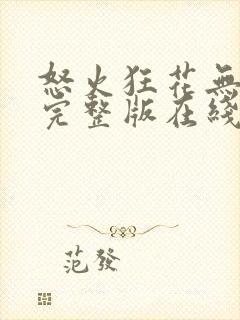 怒火狂花無
完整版在綫
范發